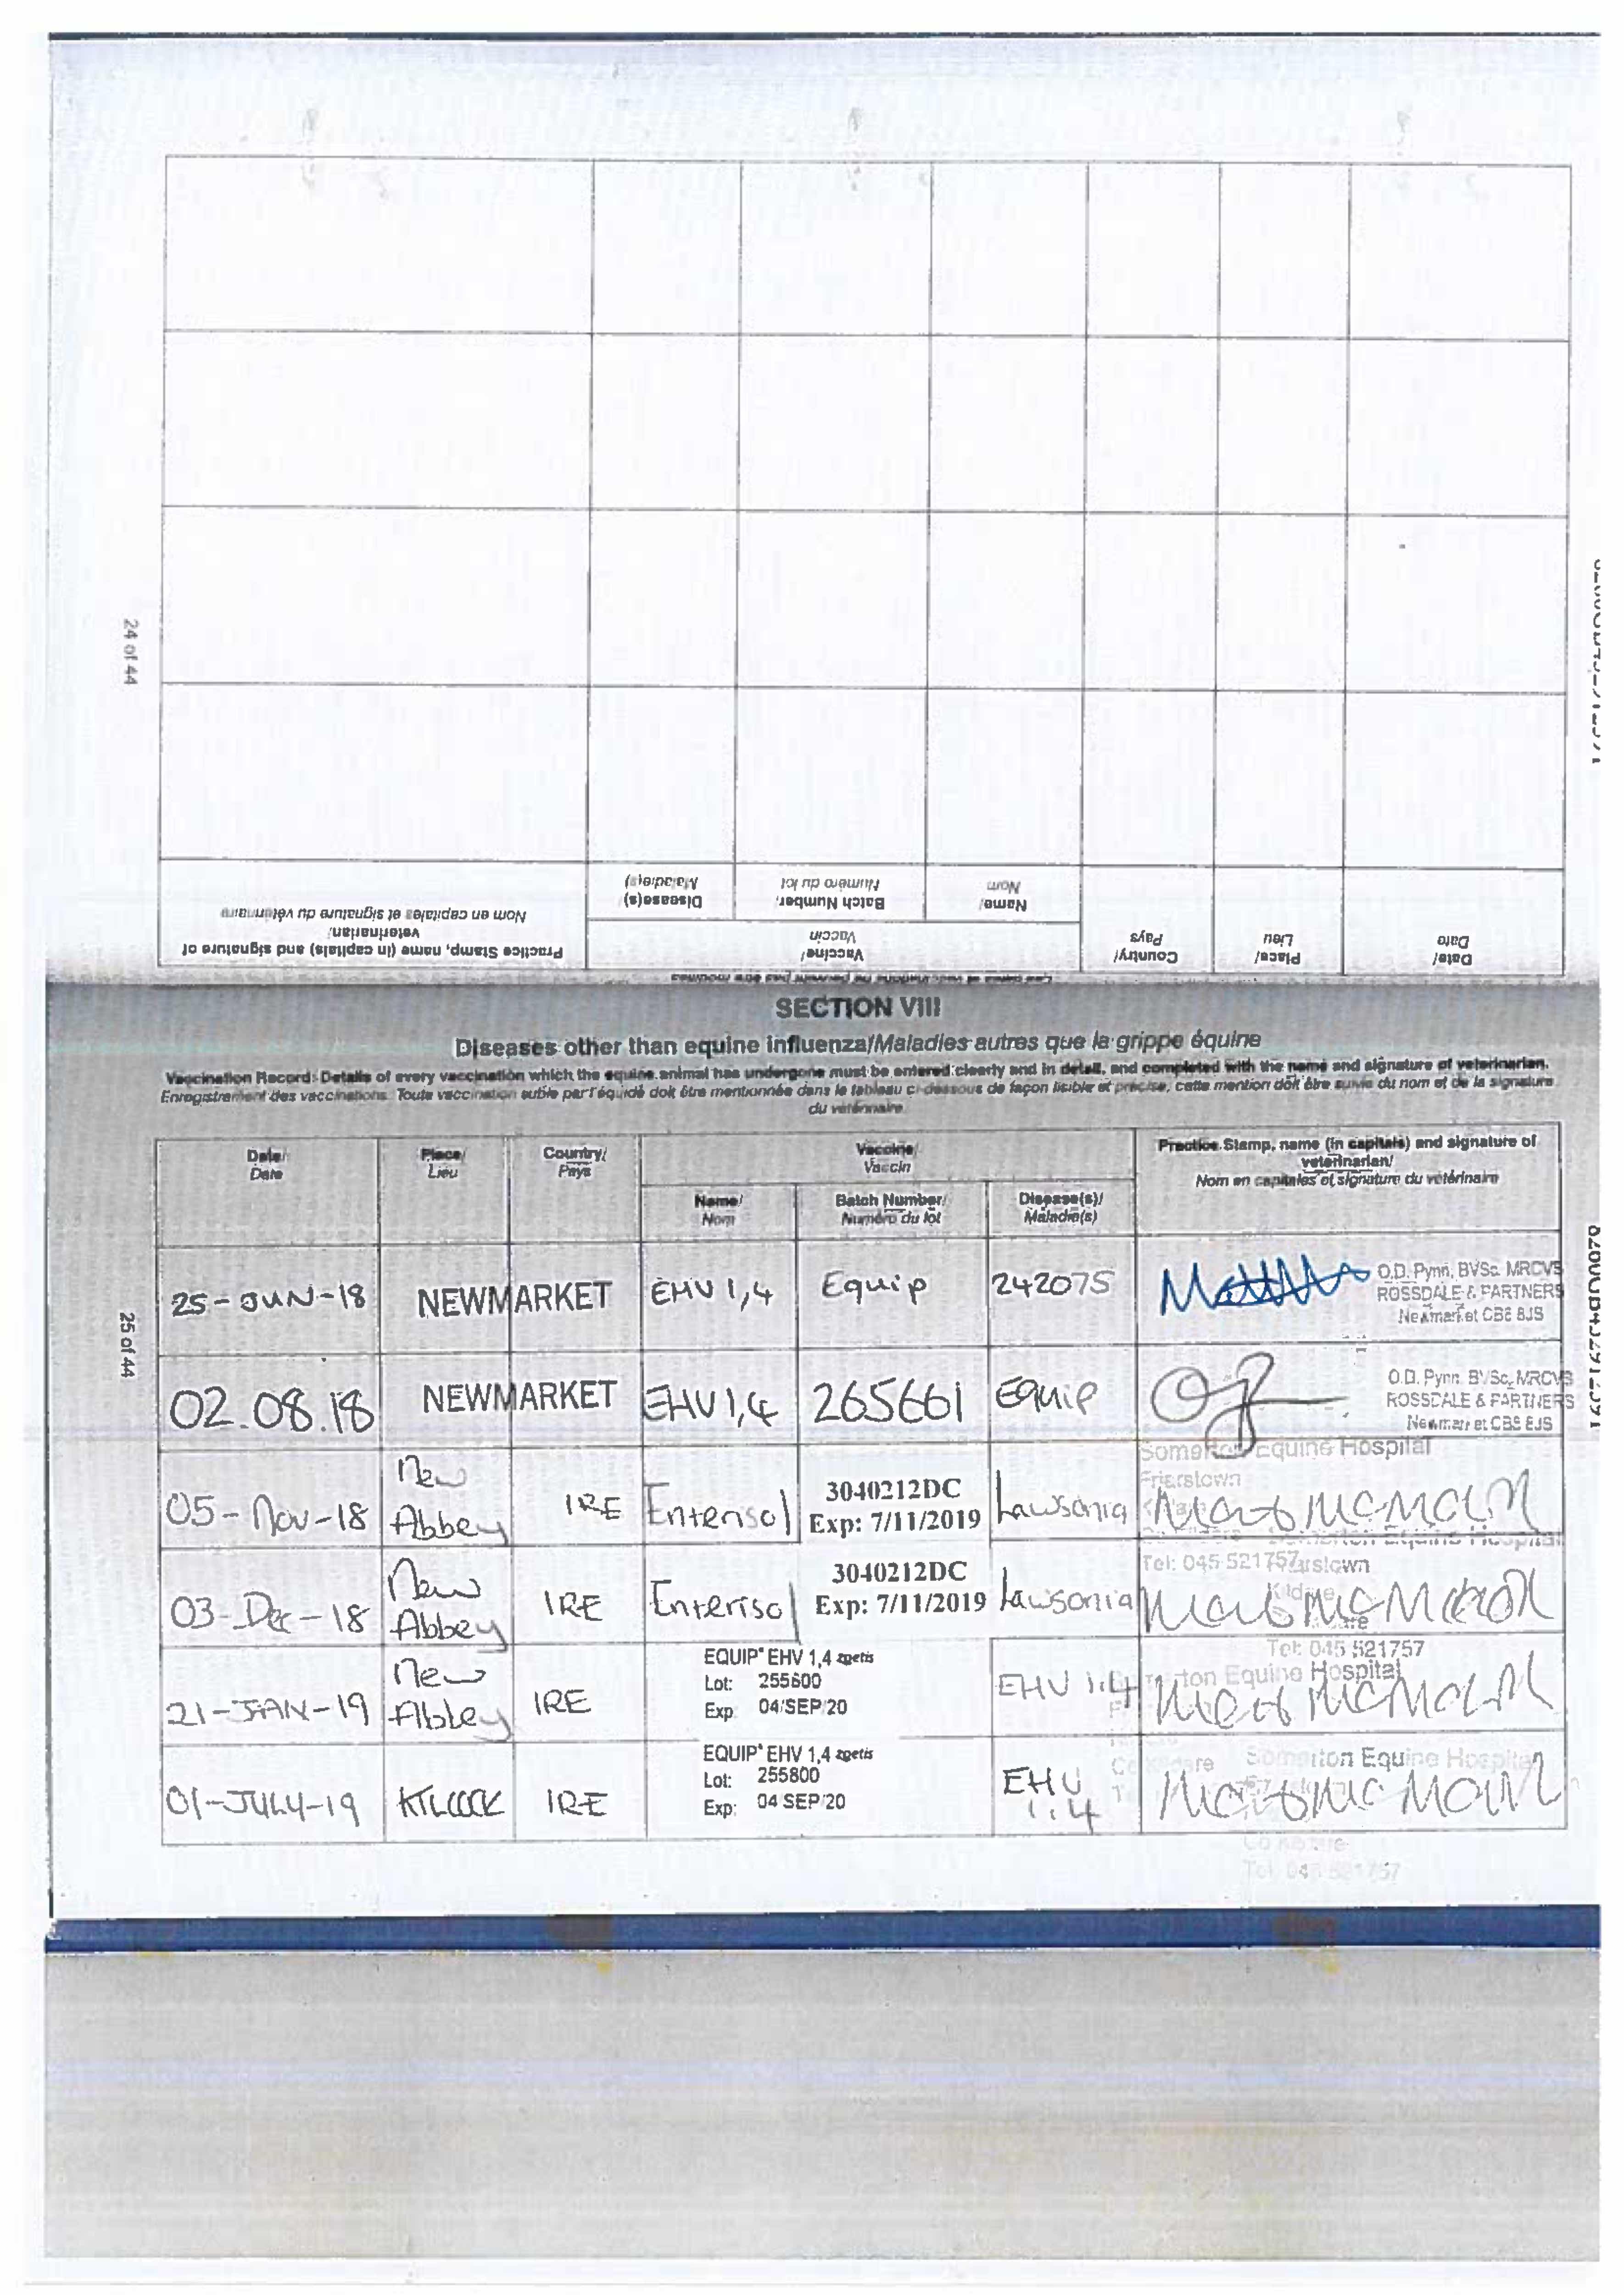 24 of 44
Practice Stamp, name (in capitals) and signature of
veterinarian/
Nom en capitales et signature du vétérinaire
Vaccine/
Vaccin
Disease(s)
Maladie(s)
Batch Number/
Numéro du lot
Name/
Nom
Country/
Pays
Place/
Lieu
Date/
Date
SECTION VIII
Diseases other than equine influenza/Maladies autres que la grippe équine
Vaccination Record: Details of every vaccination which the equine animal has undergone must be entered clearly and in detail, and completed with the name and signature of veterinarian.
Enregistrement des vaccinations: Toute vaccination subie par l'équidé doit être mentionnée dans le tableau ci-dessous de façon lisible et précise, cette mention doit être suivie du nom et de la signature
du vétérinaire
25 of 44
Date/
Date
Place/
Lieu
Country/
Pays
Vaccine/
Vaccin
Practice Stamp, name (in capitals) and signature of
veterinarian/
Nom en capitales et signature du vétérinaire
Name/
Nom
Batch Number/
Numéro du lot
Disease(s)/
Maladie(s)
25-JUN-18 NEWMARKET EHV 1,4 Equip 242075
O.D. Pynn, BVSc. MRCVS
ROSSDALE & PARTNERS
Newmarket CB8 8JS
02.08.18 NEWMARKET EHV 1,4 265661 EQUIP
O.D. Pynn. BVSc. MRCVS
ROSSDALE & PARTNERS
Newmarket CB8 8JS
05-Nov-18 New
Abbey IRE Enterisol 3040212DC
Exp: 7/11/2019 Lawsonia
Somerton Equine Hospital
Friarstown
03-Dec-18 New
Abbey IRE Enterisol 3040212DC
Exp: 7/11/2019 Lawsonia
Tel: 045 521757
Kildare
Tel: 045 521757
21-JAN-19 New
Abbey IRE EQUIP EHV 1,4 zoetis
Lot: 255800
Exp: 04/SEP/20 EHV 1:4
Equine Hospital
01-JULY-19 KILCOCK IRE EQUIP EHV 1,4 zoetis
Lot: 255800
Exp: 04 SEP/20 EHV
1:4
Somerton Equine Hospital
Co Kildare
Tel: 045 521757